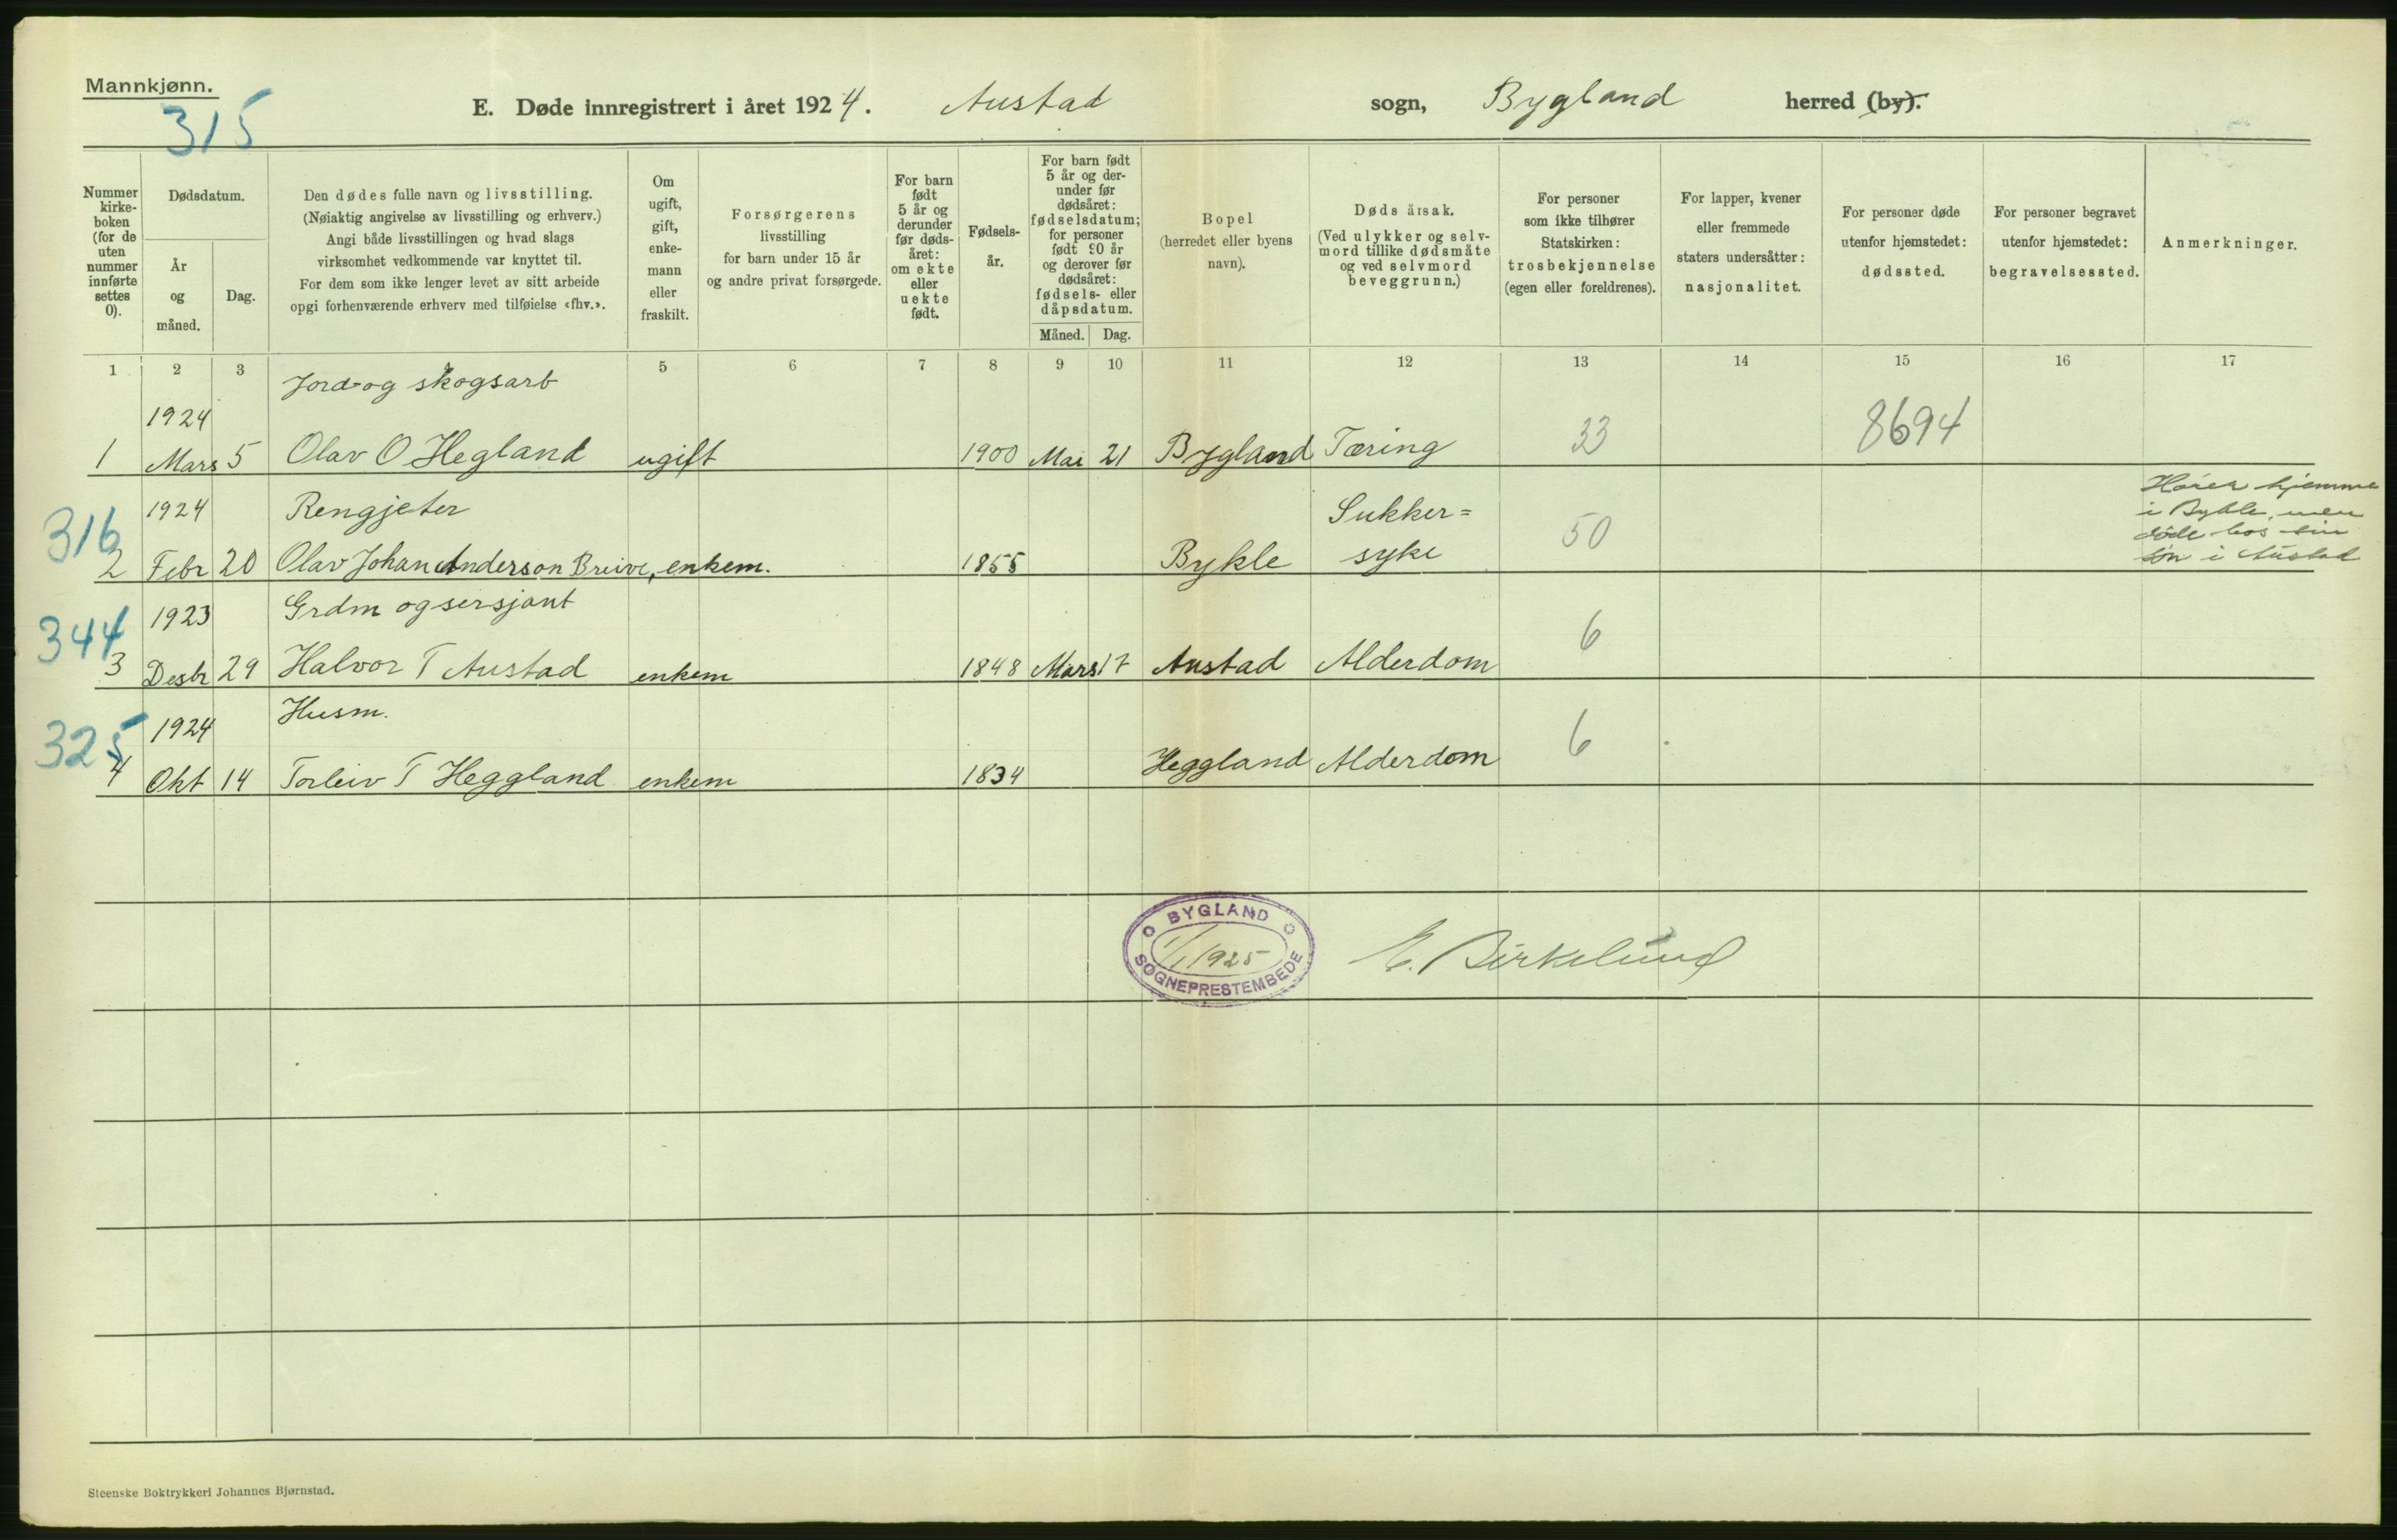 Mannkjønn.
315
E. Døde innregistrert i året 1924. Austad sogn, Bygland herred (by).
Nummer
kirke-
boken
(for de
uten
nummer
innførte
settes
0).
Dødsdatum.
År
og
måned.
Dag.
Den dødes fulle navn og livsstilling.
(Nøiaktig angivelse av livsstilling og erhverv.)
Angi både livsstillingen og hvad slags
virksomhet vedkommende var knyttet til.
For dem som ikke lenger levet av sitt arbeide
opgi forhenværende erhverv med tilføielse «fhv.».
Om
ugift,
gift,
enke-
mann
eller
fraskilt.
Forsørgerens
livsstilling
for barn under 15 år
og andre privat forsørgede.
For barn
født
5 år og
derunder
før døds-
året:
om ekte
eller
uekte
født.
Fødsels-
år.
For barn født
5 år og der-
under før
dødsåret:
fødselsdatum;
for personer
født 90 år
og derover før
dødsåret:
fødsels- eller
dåpsdatum.
Måned. Dag.
Bopel
(herredet eller byens
navn).
Døds årsak.
(Ved ulykker og selv-
mord tillike dødsmåte
og ved selvmord
beveggrunn.)
For personer
som ikke tilhører
Statskirken:
trosbekjennelse
(egen eller foreldrenes).
For lapper, kvener
eller fremmede
staters undersåtter:
nasjonalitet.
For personer døde
utenfor hjemstedet:
dødssted.
For personer begravet
utenfor hjemstedet:
begravelsessted.
Anmerkninger.
1 2 3 5 6 7 8 9 10 11 12 13 14 15 16 17
Jord-og skogsarb
1924
1 Mars 5 Olav O Hegland ugift 1900 Mai 21 Bygland Tæring 33 8694
316 1924 Rengjeter Sukker=
2 Febr 20 Olav Johan Anderson Breive, enkem. 1855 Bykle syke 50
Hører hjemme
i Bykle, men
døde hos sin
søn i Austad
344 1923 Grdm og sersjant
3 Desbr 29 Halvor T Austad enkem 1848 Mars 17 Austad Alderdom 6
325 1924 Husm.
4 Okt 14 Torleiv T Heggland enkem 1834 Heggland Alderdom 6
BYGLAND
1/1 1925
SOGNEPRESTEMBEDE
E. Birkelund
Steenske Boktrykkeri Johannes Bjørnstad.